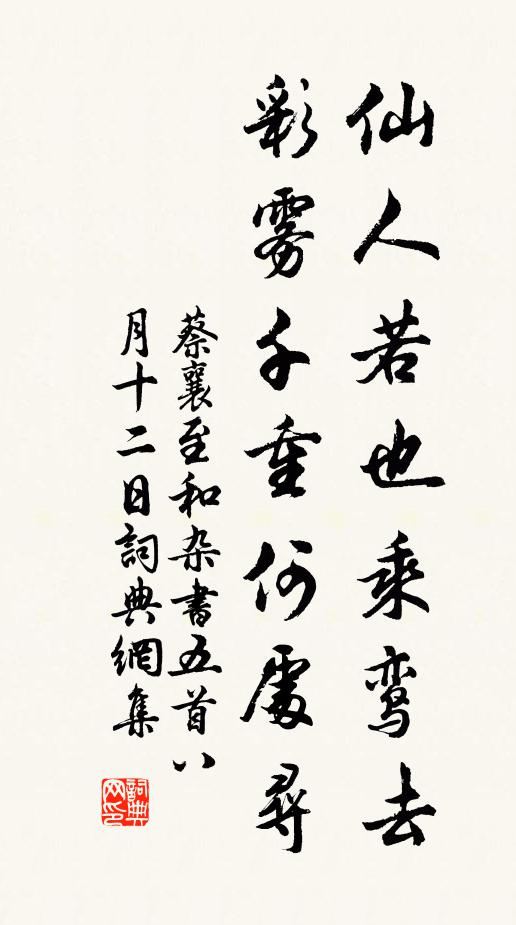 仙人若也乘鸾去
彩雾千重何處尋
蔡襄至和杂書五首八
月十二日詞典網集
詞典网印